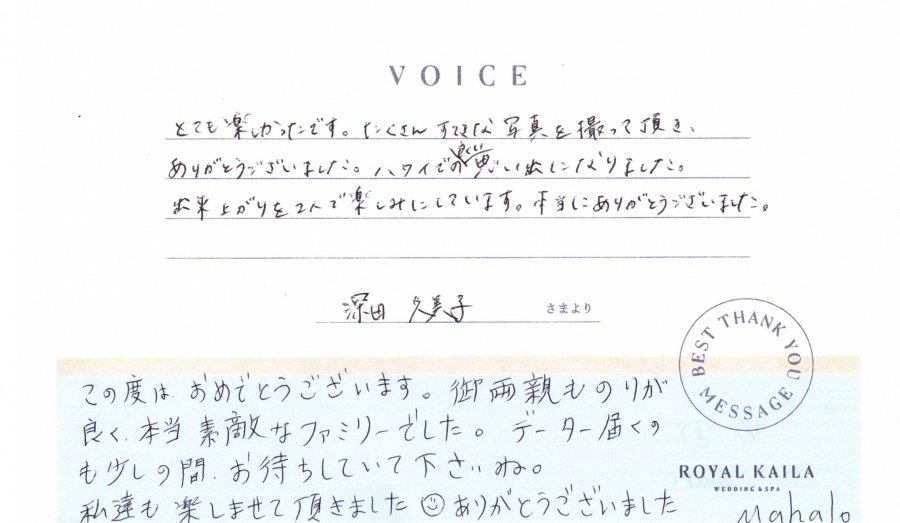 VOICE
とても楽しかったです。たくさんすてきな写真を撮って頂き、
ありがとうございました。ハワイでの良い思い出になりました。
出来上がりを2人で楽しみにしています。本当にありがとうございました。
深田 久美子 さまより
BEST THANK YOU MESSAGE
この度は おめでとうございます。御両親ものりが
良く、本当 素敵なファミリーでした。データー届くの
も少しの間、お待ちしていて下さいね。
ROYAL KAILA
WEDDING & SPA
私達も 楽しませて頂きました☺ありがとうございました
Mahalo